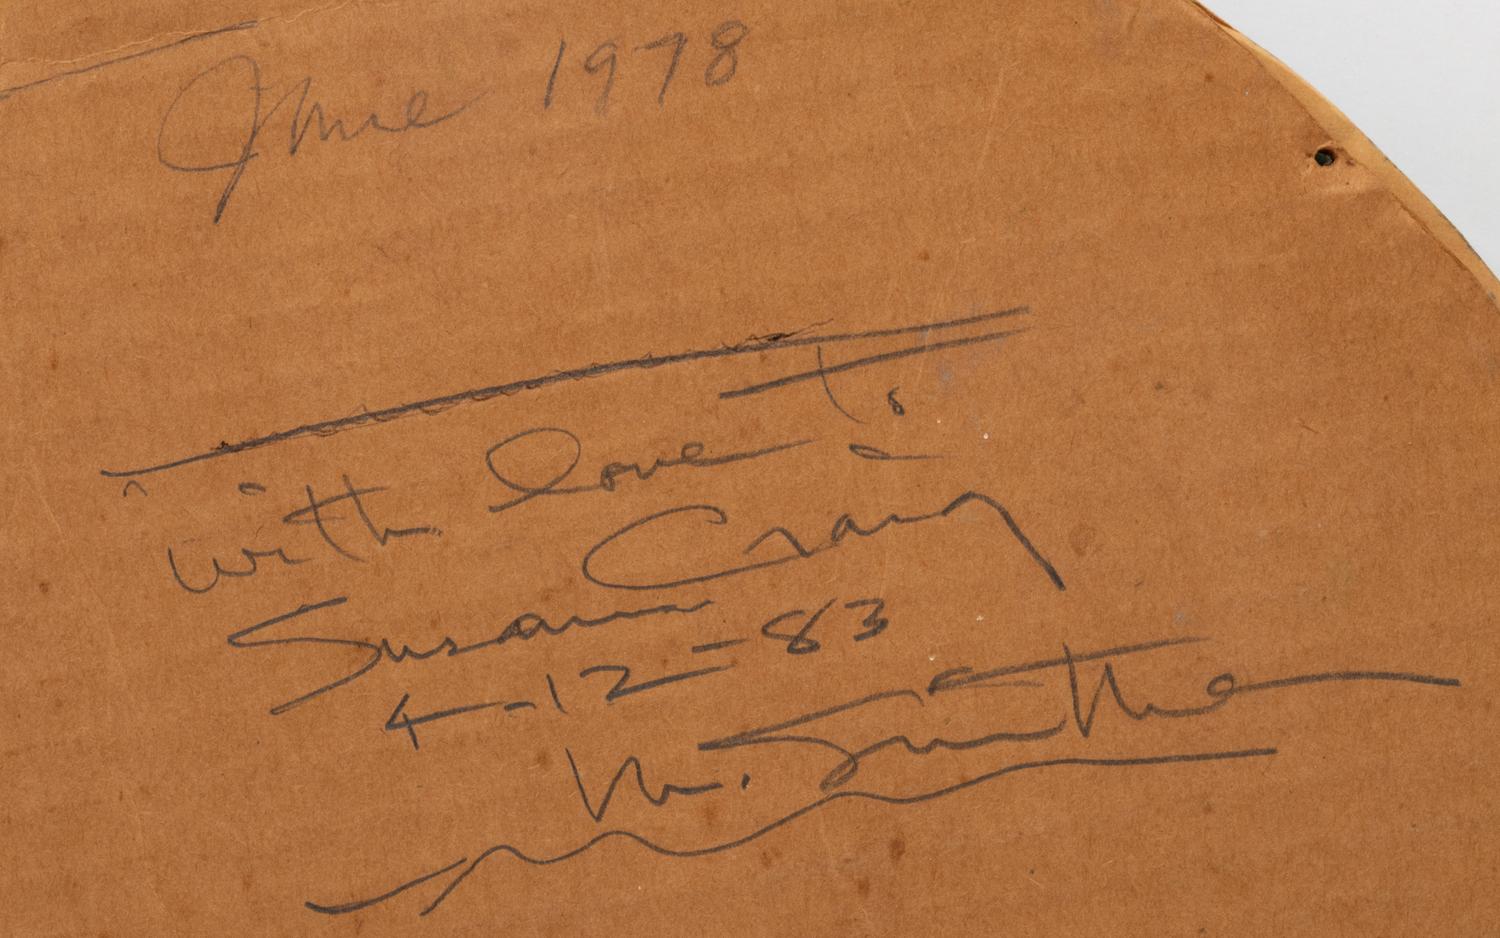 June 1978
with love to
Susann Craig
4-12-83
M. Smithe